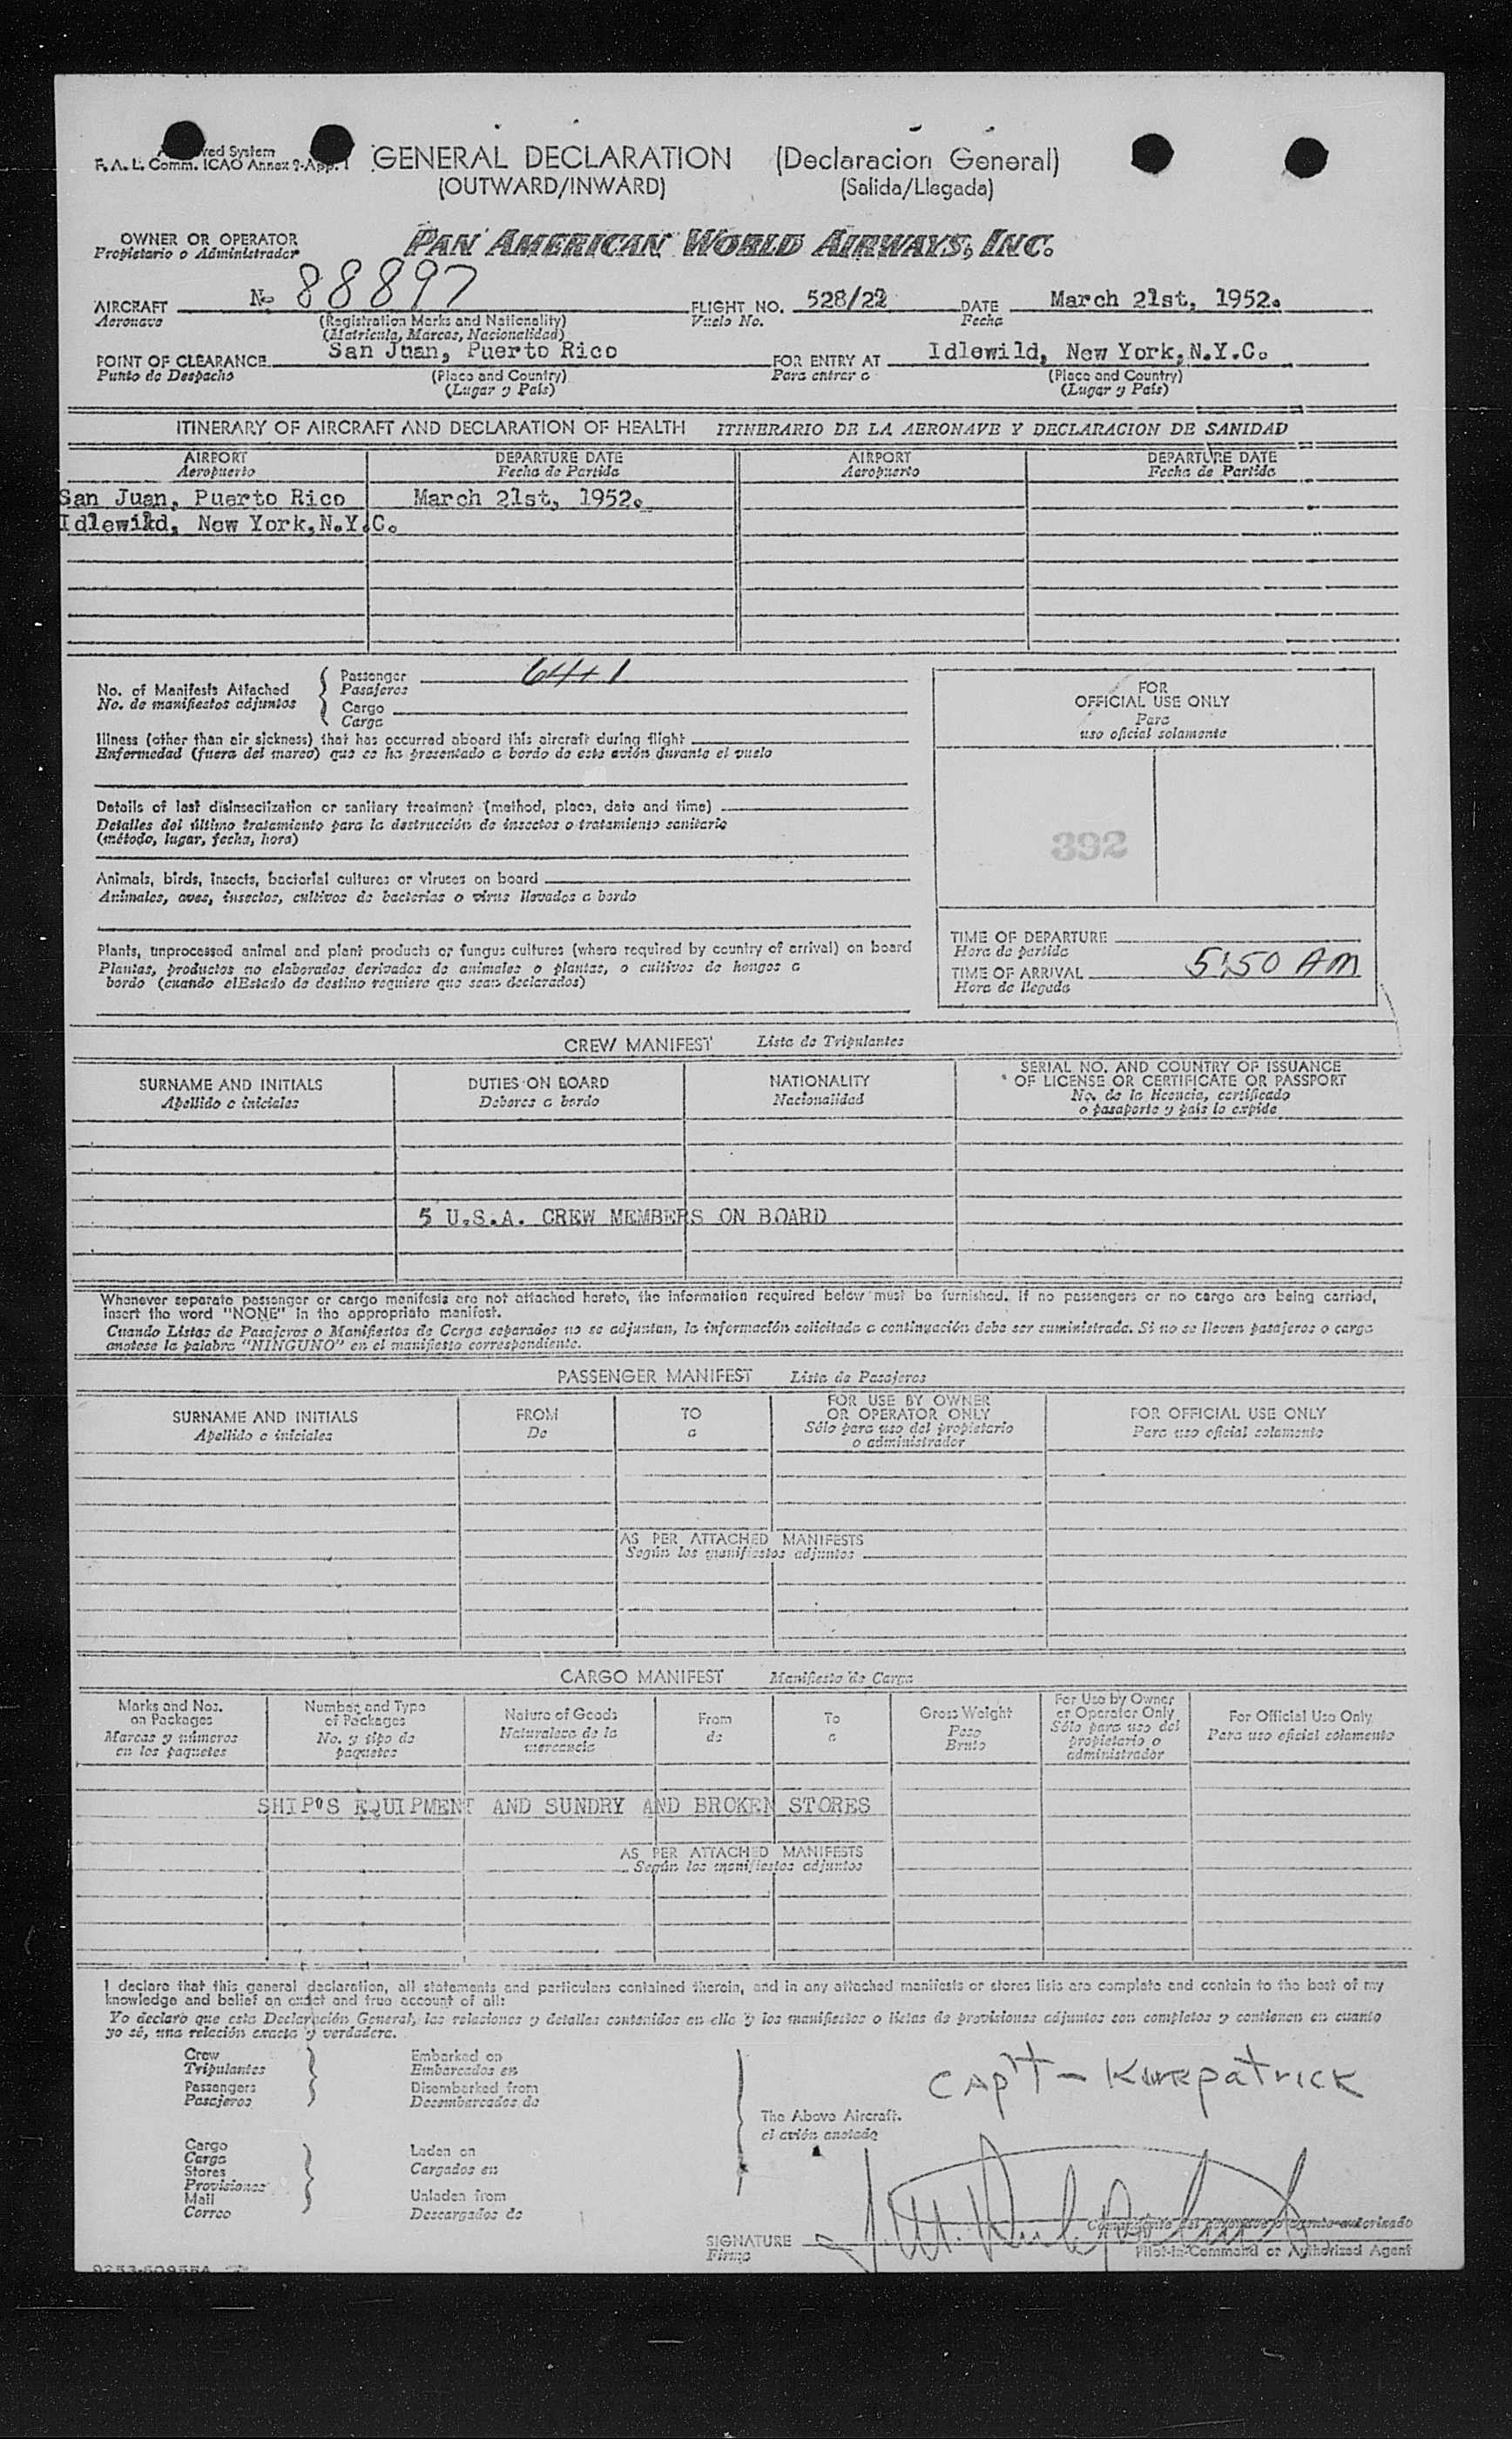 F.A.L. Comm. ICAO Annex 9-App. 1
GENERAL DECLARATION (Declaracion General)
(OUTWARD/INWARD) (Salida/Llegada)
OWNER OR OPERATOR PAN AMERICAN WORLD AIRWAYS, INC.
Propietario o Administrador
AIRCRAFT No 88897 FLIGHT NO. 528/22 DATE March 21st, 1952.
Aeronave (Registration Marks and Nationality) Vuelo No. Fecha
(Matricula, Marcas, Nacionalidad)
POINT OF CLEARANCE San Juan, Puerto Rico FOR ENTRY AT Idlewild, New York,N.Y.C.
Punto de Despacho (Place and Country) Para entrar a (Place and Country)
(Lugar y País) (Lugar y País)
ITINERARY OF AIRCRAFT AND DECLARATION OF HEALTH ITINERARIO DE LA AERONAVE Y DECLARACION DE SANIDAD
AIRPORT DEPARTURE DATE AIRPORT DEPARTURE DATE
Aeropuerto Fecha de Partida Aeropuerto Fecha de Partida
San Juan, Puerto Rico March 21st, 1952.
Idlewild, New York,N.Y.C.
No. of Manifests Attached
No. de manifiestos adjuntos
Passenger 64+1
Pasajeros
Cargo
Carga
Illness (other than air sickness) that has occurred aboard this aircraft during flight
Enfermedad (fuera del mareo) que se ha presentado a bordo de este avión durante el vuelo
Details of last disinsectization or sanitary treatment (method, place, date and time)
Detalles del último tratamiento para la destrucción de insectos o tratamiento sanitario
(método, lugar, fecha, hora)
Animals, birds, insects, bacterial cultures or viruses on board
Animales, aves, insectos, cultivos de bacterias o virus llevados a bordo
Plants, unprocessed animal and plant products or fungus cultures (where required by country of arrival) on board
Plantas, productos no elaborados derivados de animales o plantas, o cultivos de hongos a
bordo (cuando elEstado de destino requiere que sean declarados)
FOR
OFFICIAL USE ONLY
Para
uso oficial solamente
392
TIME OF DEPARTURE
Hora de partida
TIME OF ARRIVAL 5:50 AM
Hora de llegada
CREW MANIFEST Lista de Tripulantes
SURNAME AND INITIALS DUTIES ON BOARD NATIONALITY SERIAL NO. AND COUNTRY OF ISSUANCE
Apellido e iniciales Deberes a bordo Nacionalidad OF LICENSE OR CERTIFICATE OR PASSPORT
No. de la licencia, certificado
o pasaporte y país lo expide
5 U.S.A. CREW MEMBERS ON BOARD
Whenever separate passenger or cargo manifests are not attached hereto, the information required below must be furnished. If no passengers or no cargo are being carried,
insert the word "NONE" in the appropriate manifest.
Cuando Listas de Pasajeros o Manifiestos de Carga separados no se adjuntan, la información solicitada a continuación debe ser suministrada. Si no se lleven pasajeros o carga
anotese la palabra "NINGUNO" en el manifiesto correspondiente.
PASSENGER MANIFEST Lista de Pasajeros
SURNAME AND INITIALS FROM TO FOR USE BY OWNER OR OPERATOR ONLY FOR OFFICIAL USE ONLY
Apellido e iniciales De a Sólo para uso del propietario o administrador Para uso oficial solamente
AS PER ATTACHED MANIFESTS
Según los manifiestos adjuntos
CARGO MANIFEST Manifiesto de Carga
Marks and Nos. on Packages
Marcas y números en los paquetes
Number and Type of Packages
No. y tipo de paquetes
Nature of Goods
Naturaleza de la mercancia
From
de
To
a
Gross Weight
Peso Bruto
For Use by Owner or Operator Only
Sólo para uso del propietario o administrador
For Official Use Only
Para uso oficial solamente
SHIP'S EQUIPMENT AND SUNDRY AND BROKEN STORES
AS PER ATTACHED MANIFESTS
Según los manifiestos adjuntos
I declare that this general declaration, all statements and particulars contained therein, and in any attached manifests or stores lists are complete and contain to the best of my
knowledge and belief an exact and true account of all:
Yo declaro que esta Declaración General, las relaciones y detalles contenidos en ella y los manifiestos o listas de provisiones adjuntos son completos y contienen en cuanto
yo sé, una relación exacta y verdadera.
Crew Embarked on
Tripulantes Embarcados en
Passengers Disembarked from
Pasajeros Desembarcados de
Cargo
Carga
Stores
Provisiones
Mail
Correo
Laden on
Cargados en
Unladen from
Descargados de
The Above Aircraft.
el avión anotado
CAP'T - KIRKPATRICK
SIGNATURE
Firma
Pilot-in-Command or Authorized Agent